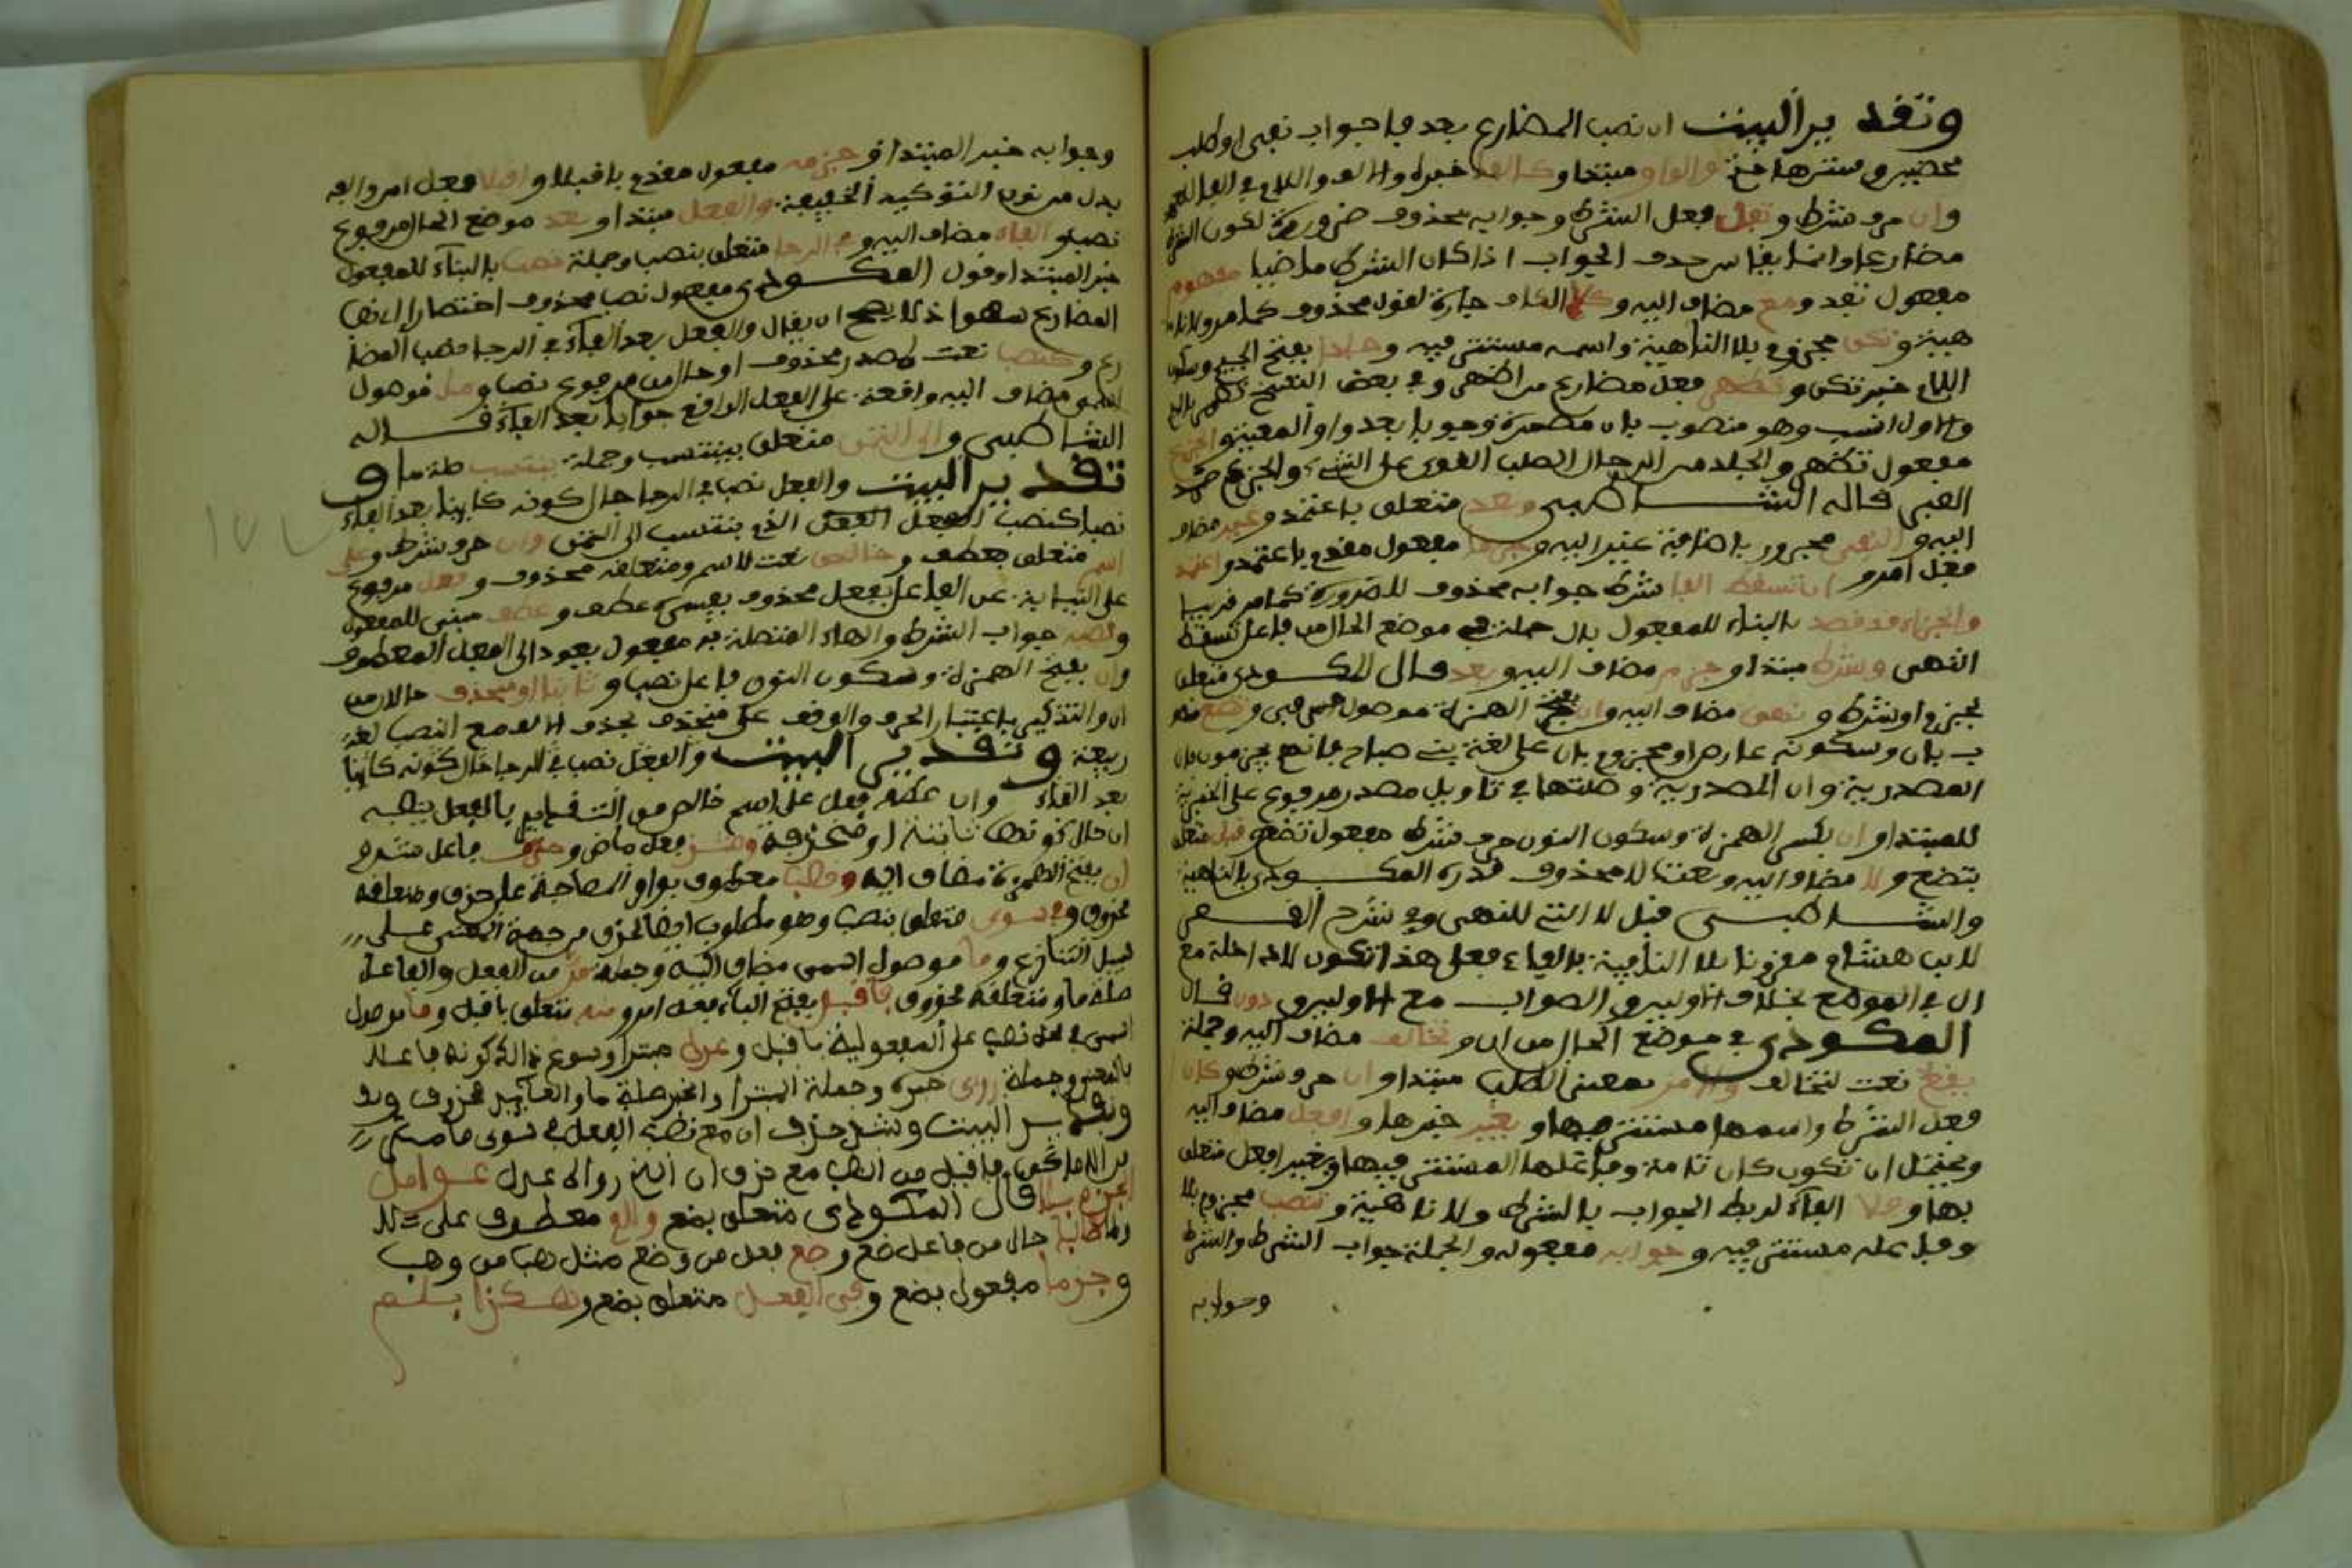 وتقدير البيت ان نصب المضارع بعد فا جواب نفي او طلب
محضين وسترها حتم والواو مبتدا وكالفا خبره والالف واللام في الفا للعهد
وان حرف شرط وتفد فعل الشرط وجوابه محذوف ضرورة لكون الشرط
مضارعا وانما يقاس حذف الجواب اذا كان الشرط ماضيا مفهوم
مفعول تفد ومع مضاف اليه وكلا الكاف جارة لقول محذوف كما مر ولا نا
هية وتكن مجزوم بلا الناهية واسمه مستتر فيه وجلدا بفتح الجيم وسكون
اللام خبر تكن وتظهر فعل مضارع من اظهر وفي بعض النسخ
والاول انسب وهو منصوب بان مضمرة وجوبا بعد واو المعية والجزع
مفعول تظهر والجلد من الرجال الصلب القوي على الشيء والجزع ضد
الصبر قاله الشاطبي وبعد متعلق باعتمد وغير مضاف
اليه والنفي مجرور باضافة غير اليه وجزما مفعول مقدم باعتمد واعتمد
فعل امر وان تسقط الفا شرط جوابه محذوف للضرورة كما مر قريبا
والجزاء قد قصد بالبناء للمفعول بال جملة في موضع الحال من فاعل تسقط
انتهى وشرط مبتدا وجزم مضاف اليه وبعد قال المكودي متعلق
بجزم او شرط ونهي مضاف اليه وان بفتح الهمزة موصول حرفي وتضع منصو
ب بان وسكونه عارض او مجزوم بان على لغة بني صباح فانهم يجزمون بان
المصدرية وان المصدرية وصلتها في تاويل مصدر مرفوع على الخبرية
للمبتدا وان بكسر الهمزة وسكون النون حرف شرط مفعول تضع وقبل متعلق
بتضع ولا مضاف اليه ونعت لا محذوف قدره المكودي بالناهية
والشاطبي قبل لا التي للنهي وفي شرح القصر
لابن هشام مقرونا بلا النافية بالفاء فعل هذا تكون لا داخلة مع
ان في الموضع بخلاف الاول وهو الصواب مع الاول دون قال
المكودي في موضع الحال من ان وتخالف مضاف اليه وجملة
يقع نعت لتخالف والامر بمعنى الطلب مبتدا وان حرف شرط وكان
فعل الشرط واسمها مستتر فيها وبغير خبرها وافعل مضاف اليه
ويحتمل ان تكون كان تامة وفاعلها المستتر فيها وبغير افعل متعلق
بها وفلا الفاء لربط الجواب بالشرط ولا ناهية وتنصب مجزوم بلا
وفاعله مستتر فيه وجوابه مفعوله والجملة جواب الشرط والشرط
وجوابه
وجوابه خبر المبتدا وجزمه مفعول مقدم باقبلا واقبلا فعل امر والفه
بدل من نون التوكيد الخفيفة والفعل مبتدا وبعد موضع الحال مرفوع
نصب والفاء مضاف اليه وفي الرجا متعلق بنصب وجملة نصب بالبناء للمفعول
خبر المبتدا وقول المكودي مفعول نصب محذوف اختصارا اي نصب
المضارع سهو اذ لا يصح ان يقال والفعل بعد الفاء في الرجا نصب المضا
رع وكنصب نعت لمصدر محذوف او حال من مرفوع نصب وما موصول
اسمي مضاف اليه واقعة على الفعل الواقع جوابا بعد الفاء قاله
الشاطبي والى التمني متعلق بينتسب وجملة ينتسب صلة ما و
تقدير البيت والفعل نصب في الرجا حال كونه كاينا بعد الفاء
نصبا كنصب الفعل الذي ينتسب الى التمني وان حرف شرط وعلى
اسم متعلق بعطف وخالص نعت لاسم ومتعلقه محذوف وفعل مرفوع
على النيابة عن الفاعل بفعل محذوف يفسره عطف وعطف مبني للمفعول
وتنصبه جواب الشرط والهاء المتصلة به مفعول يعود الى الفعل المعطوف
وان بفتح الهمزة وسكون النون فاعل تنصب وثابتا او منحذف حالان من
ان والتذكير باعتبار الحرف والوقف على منحذف بحذف الالف مع النصب لغة
ربيعة وتقدير البيت والفعل نصب في الرجا حال كونه كاينا
بعد الفاء وان عطف فعل على اسم خالص من التقدير بالفعل ينصبه
ان حال كونها ثابتة او منحذفة وشذ فعل ماض وحذف فاعل شذ و
ان بفتح الهمزة مضاف اليه ونصب معطوف بواو المصاحبة على حذف ومتعلقه
محذوف وفي سوى متعلق بنصب وهو مطلوب ايضا لحذف من جهة المعنى على
سبيل التنازع وما موصول اسمي مضاف اليه وجملة مر من الفعل والفاعل
صلة ما ومتعلقه محذوف فاقبل بفتح الباء فعل امر ومنه متعلق باقبل وما موصول
اسمي في محل نصب على المفعولية باقبل وعدل مبتدا وسوغ ذلك كونه فاعلا
بالمعنى وجملة روى خبره وجملة المبتدا والخبر صلة ما والعايد محذوف
وتقدير البيت وشذ حذف ان مع نصب الفعل في سوى ما مر
فاقبل من النصب مع حذف ان الذي رواه عدل عوامل
الجزم بلا قال المكودي متعلق بضع ولام معطوف على لا
وطالبا حال من فاعل ضع وضع فعل من وضع مثل هب من وهب
وجزما مفعول بضع وفي الفعل متعلق بضع وهكذا بلم